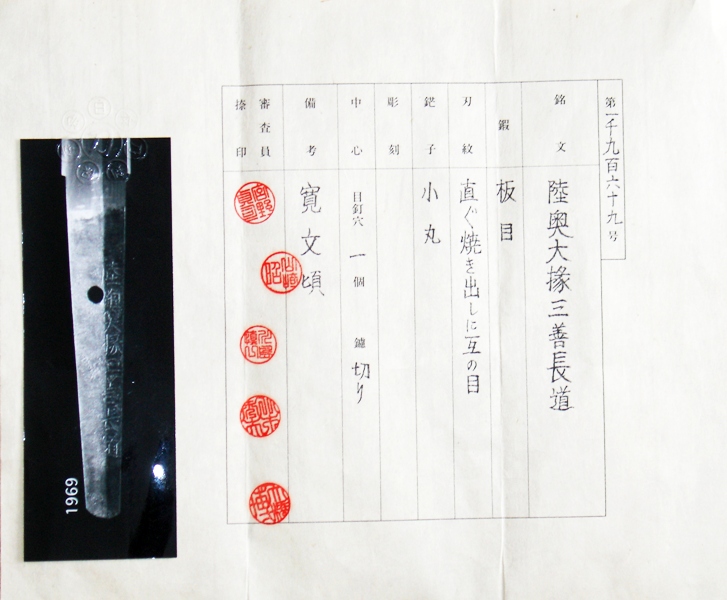 第一千九百六十九号
銘文 陸奥大掾三善長道
鍜 板目
刃紋 直ぐ焼き出しに互の目
鋩子 小丸
彫刻
中心 目釘穴 一個 鑢 切り
備考 寛文頃
審査員
捺印
陸奥大掾三善長道
1969